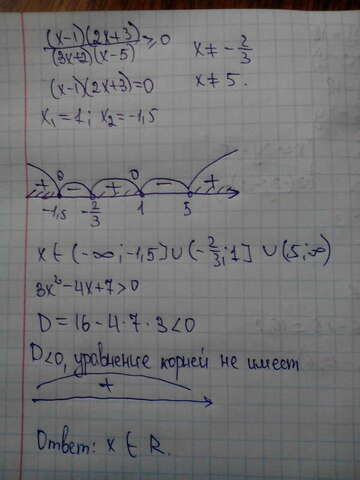 (x-1)(2x+3)/(3x+2)(x-5) ≥ 0
x ≠ -2/3
(x-1)(2x+3)=0
x ≠ 5.
x₁ = 1; x₂ = -1,5
+ - + - +
-1,5 -2/3 1 5
x ∈ (-∞; -1,5] ∪ (-2/3; 1] ∪ (5; ∞)
3x²-4x+7>0
D = 16-4·7·3<0
D<0, уравнение корней не имеет
+
Ответ: x ∈ R.